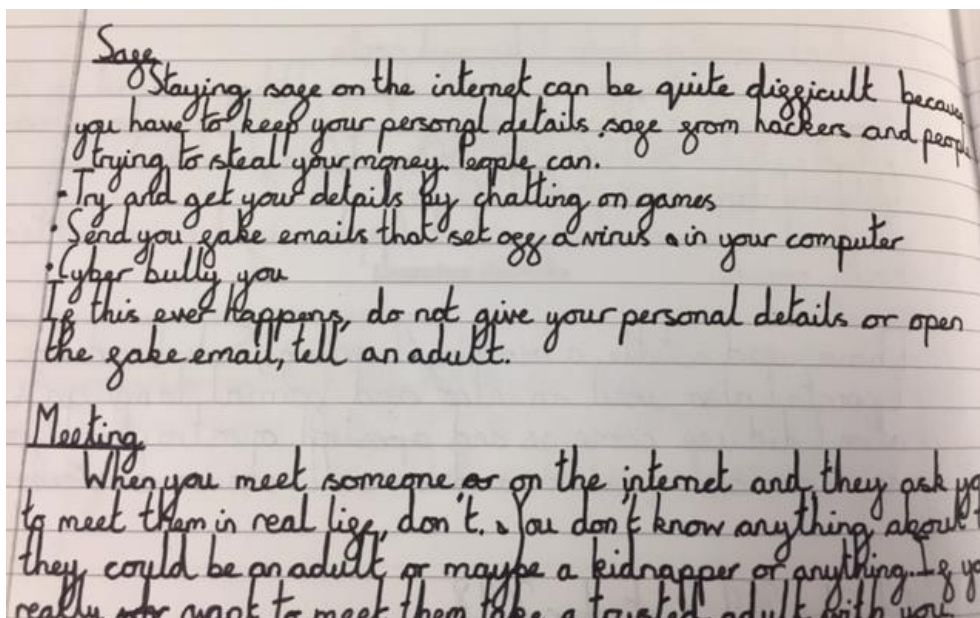 Safe
Staying safe on the internet can be quite difficult because
you have to keep your personal details safe from hackers and people
trying to steal your money. People can.
• Try and get your details by chatting on games
• Send you fake emails that set off a virus in your computer
• Cyber bully you
If this ever Happens, do not give your personal details or open
the fake email, tell an adult.
Meeting
When you meet someone on the internet and they ask
to meet them in real life, don't. You don't know anything about
they could be an adult or maybe a kidnapper or anything. If
really want to meet them take a trusted adult with you